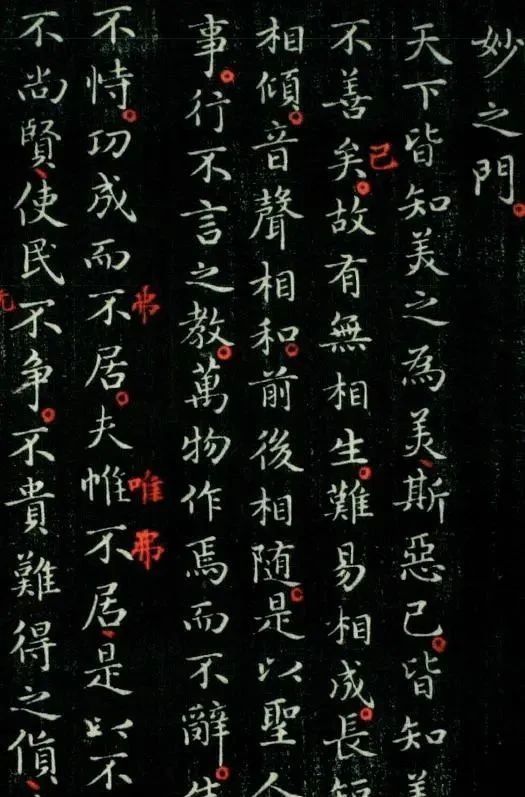 妙之門。
天下皆知美之為美、斯惡已。皆知美
不善矣。故有無相生。難易相成。長短
已
相傾。音聲相和。前後相随。是以聖人
事。行不言之教。萬物作焉而不辭。生
不恃。功成而不居。夫惟不居、是以不
弗
唯
弗
不尚賢、使民不争。不貴難得之貨、